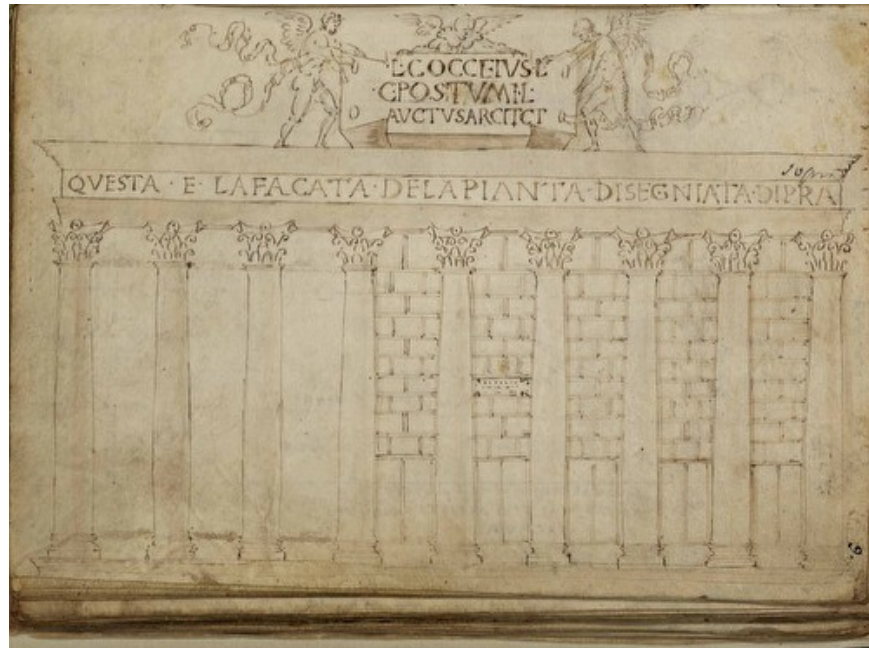 L·COCCEIVS·L
·C·POSTVMI·L·
AVCTVSARCITCT
sopra
QVESTA · E · LAFACATA · DELAPIANTA · DISEGNIATA · DIPRA